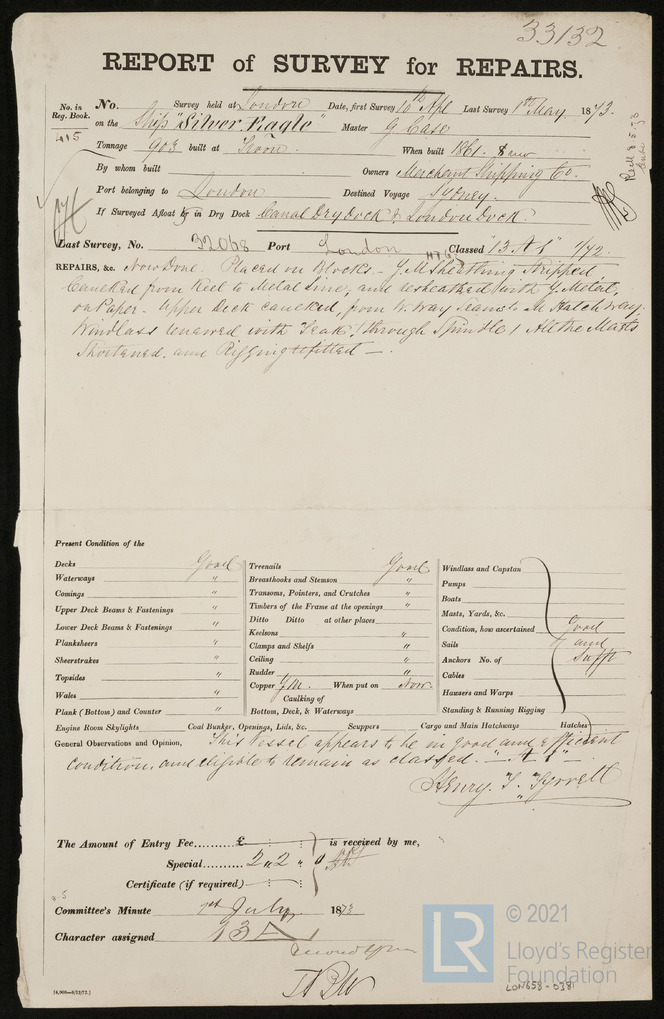 33132
REPORT of SURVEY for REPAIRS.
No. in Reg. Book. No. Survey held at London Date, first Survey 10th Apl Last Survey 1st May 1873.
415 on the Ship "Silver Eagle" Master G Case
Tonnage 903 built at Troon. When built 1861.
By whom built Owners Merchant Shipping Co.
Port belonging to London Destined Voyage Sydney.
If Surveyed Afloat or in Dry Dock Canal Dry Dock & London Dock.
Last Survey, No. 32068 Port London Classed "13 A 1" 4/72.
REPAIRS, &c. Now Done. Placed on Blocks - Y.M Sheathing Stripped
Caulked from Keel to Metal line, and resheathed with Y. Metal,
on Paper. Upper Deck caulked, from W. Way Seams to M Hatchway,
Windlass renewed with Teak (through Spindle) All the Masts
Shortened and Rigging refitted —.
Present Condition of the
Decks Good
Waterways "
Comings "
Upper Deck Beams & Fastenings "
Lower Deck Beams & Fastenings "
Planksheers "
Sheerstrakes "
Topsides "
Wales "
Plank (Bottom) and Counter "
Treenails Good
Breasthooks and Stemson "
Transoms, Pointers, and Crutches "
Timbers of the Frame at the openings "
Ditto Ditto at other places
Keelsons "
Clamps and Shelfs "
Ceiling "
Rudder "
Copper Y.M. When put on Now.
Caulking of
Bottom, Deck, & Waterways
Windlass and Capstan
Pumps
Boats
Masts, Yards, &c.
Condition, how ascertained Good
Sails and
Anchors No. of Sufft
Cables
Hawsers and Warps
Standing & Running Rigging
Engine Room Skylights Coal Bunker, Openings, Lids, &c. Scuppers Cargo and Main Hatchways Hatches
General Observations and Opinion, This Vessel appears to be in good and efficient
condition, and eligible to remain as classed. "A 1"
Henry. T. Tyrrell
The Amount of Entry Fee......... £ : : is received by me,
Special......... 2 " 2 " 0
Certificate (if required) : :
Committee's Minute 1st July 1873
Character assigned 13 A 1
[4,900—9/12/72.]
LR
© 2021
Lloyd's Register
Foundation
LON658-0381